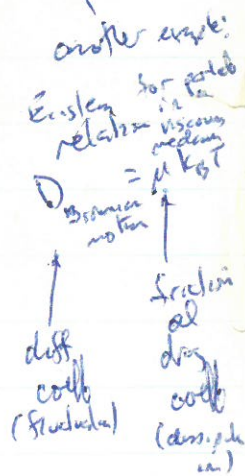 another example:
Einstein for particle
relation in a
viscous
medium
D = μ k_B T
Brownian
motion
diff
coeff
(fluctuation)
friction
al
drag
coeff
(dissipation